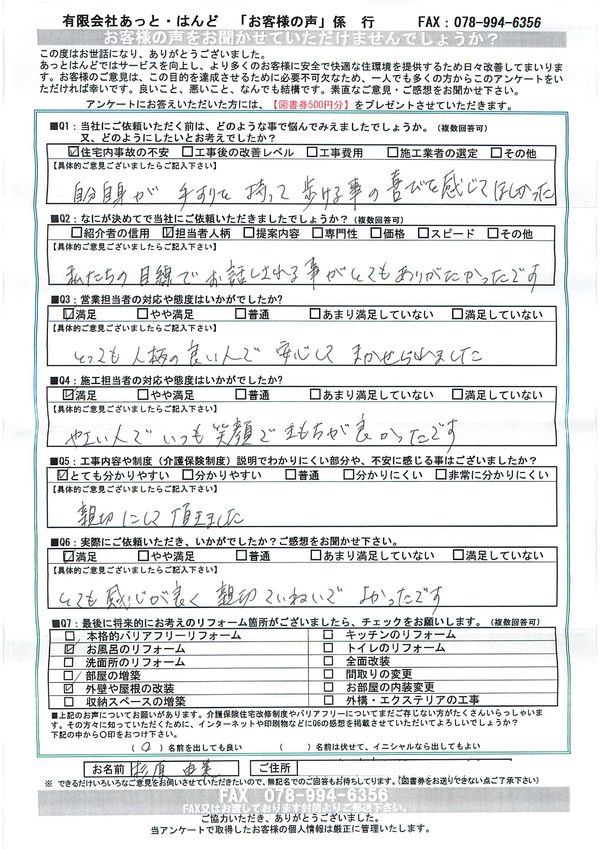 有限会社あっと・はんど 「お客様の声」係 行 FAX：078-994-6356
お客様の声をお聞かせていただけませんでしょうか？
この度はお世話になり、ありがとうございました。
あっとはんどではサービスを向上し、より多くのお客様に安全で快適な住環境を提供するため日々改善してまいります。お客様のご意見は、この目的を達成させるために必要不可欠なため、一人でも多くの方からこのアンケートをいただければ幸いです。良いこと、悪いこと、なんでも結構です。素直なご意見・ご感想をお聞かせ下さい。
アンケートにお答えいただいた方には、【図書券500円分】をプレゼントさせていただきます。
■Q1：当社にご依頼いただく前は、どのような事で悩んでみえましたでしょうか。（複数回答可）
又、どのようにしたいとお考えでしたか？
☑住宅内事故の不安 □工事後の改善レベル □工事費用 □施工業者の選定 □その他
【具体的ご意見ございましたらご記入下さい】
自分自身が 手すりを 持って 歩ける事の喜びを感じてほしかった
■Q2：なにが決めてで当社にご依頼いただきましたでしょうか？（複数回答可）
□紹介者の信用 ☑担当者人柄 □提案内容 □専門性 □価格 □スピード □その他
【具体的ご意見ございましたらご記入下さい】
私たちの目線でお話しされる事がとてもありがたかったです
■Q3：営業担当者の対応や態度はいかがでしたか？
☑満足 □やや満足 □普通 □あまり満足していない □満足していない
【具体的ご意見ございましたらご記入下さい】
とっても人柄の良い人で 安心して まかせられました
■Q4：施工担当者の対応や態度はいかがでしたか？
☑満足 □やや満足 □普通 □あまり満足していない □満足していない
【具体的ご意見ございましたらご記入下さい】
人でいつも笑顔で きもちが良かったです
■Q5：工事内容や制度（介護保険制度）説明でわかりにくい部分や、不安に感じる事はございましたか？
☑とても分かりやすい □分かりやすい □普通 □分かりにくい □非常に分かりにくい
【具体的ご意見ございましたらご記入下さい】
親切にして頂きました
■Q6：実際にご依頼いただき、いかがでしたか？ご感想をお聞かせ下さい。
☑満足 □やや満足 □普通 □あまり満足していない □満足していない
【具体的ご意見ございましたらご記入下さい】
とても感じが良く 親切ていねいで よかったです
■Q7：最後に将来的にお考えのリフォーム箇所がございましたら、チェックをお願いします。（複数回答可）
□ 本格的バリアフリーリフォーム □ キッチンのリフォーム
☑ お風呂のリフォーム □ トイレのリフォーム
□ 洗面所のリフォーム □ 全面改装
□ 部屋の増築 □ 間取りの変更
☑ 外壁や屋根の改装 □ お部屋の内装変更
□ 収納スペースの増築 □ 外構・エクステリアの工事
■上記のお声についてお願いがあります。介護保険住宅改修制度やバリアフリーについてまだご存じない方がたくさんいらっしゃいます。その方々に知っていただくために、インターネットや印刷物などにQ6の感想を掲載させていただいてよろしいでしょうか？
下記の中から〇印をおつけ下さい。
（〇）名前を出しても良い （ ）名前は伏せて、イニシャルなら出してもよい
お名前 杉原 由美 ご住所
※ できるだけいろいろなご意見をお伺いさせていただきたいので、無記名でのご回答もお待ちしてります。（図書券をお送りできない点ご了承下さい）
FAX 078-994-6356
FAX又はお渡しております封筒よりご郵送下さい。
ご協力いただき、ありがとうございました。
当アンケートで取得したお客様の個人情報は厳正に管理いたします。